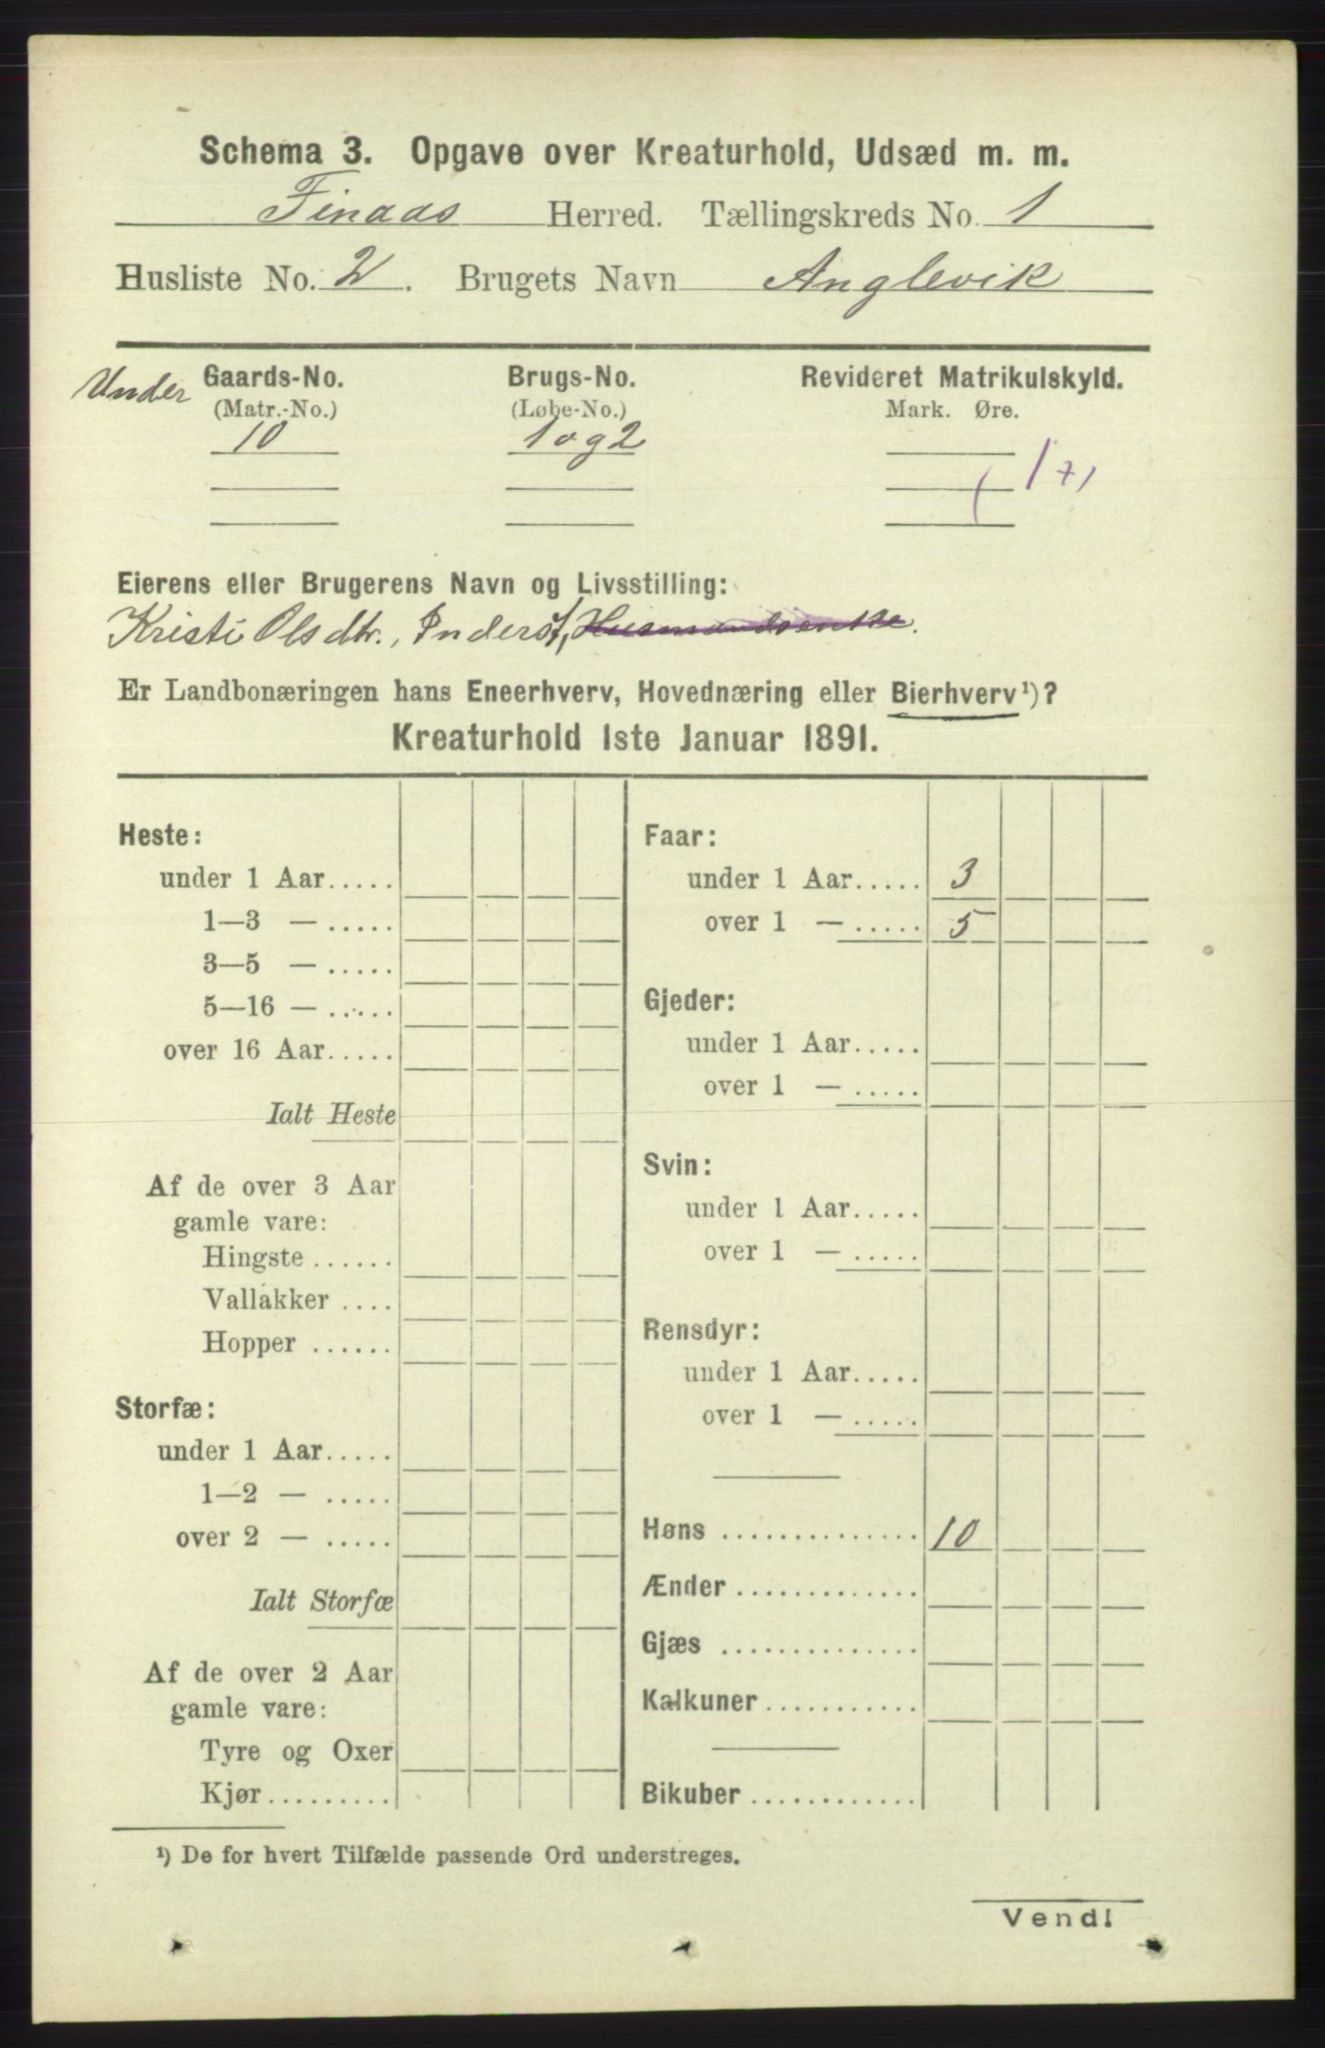 Schema 3. Opgave over Kreaturhold, Udsæd m. m.
Finaas Herred. Tællingskreds No. 1
Husliste No. 2. Brugets Navn Anglevik
Under Gaards-No. Brugs-No. Revideret Matrikulskyld.
(Matr.-No.) (Løbe-No.) Mark. Øre.
10 1 og 2
Eierens eller Brugerens Navn og Livsstilling:
Kristi Olsdtr., Inderst, Husmandsenke.
Er Landbonæringen hans Eneerhverv, Hovednæring eller Bierhverv¹)?
Kreaturhold 1ste Januar 1891.
Heste:
under 1 Aar.....
1—3 — .....
3—5 — .....
5—16 — .....
over 16 Aar.....
Ialt Heste
Af de over 3 Aar
gamle vare:
Hingste ......
Vallakker ....
Hopper ......
Storfæ:
under 1 Aar.....
1—2 — .....
over 2 — .....
Ialt Storfæ
Af de over 2 Aar
gamle vare:
Tyre og Oxer
Kjør.........
Faar:
under 1 Aar..... 3
over 1 — ..... 5
Gjeder:
under 1 Aar.....
over 1 — .....
Svin:
under 1 Aar.....
over 1 — .....
Rensdyr:
under 1 Aar.....
over 1 — .....
Høns .............. 10
Ænder .............
Gjæs ..............
Kalkuner ...........
Bikuber ............
¹) De for hvert Tilfælde passende Ord understreges.
Vend!